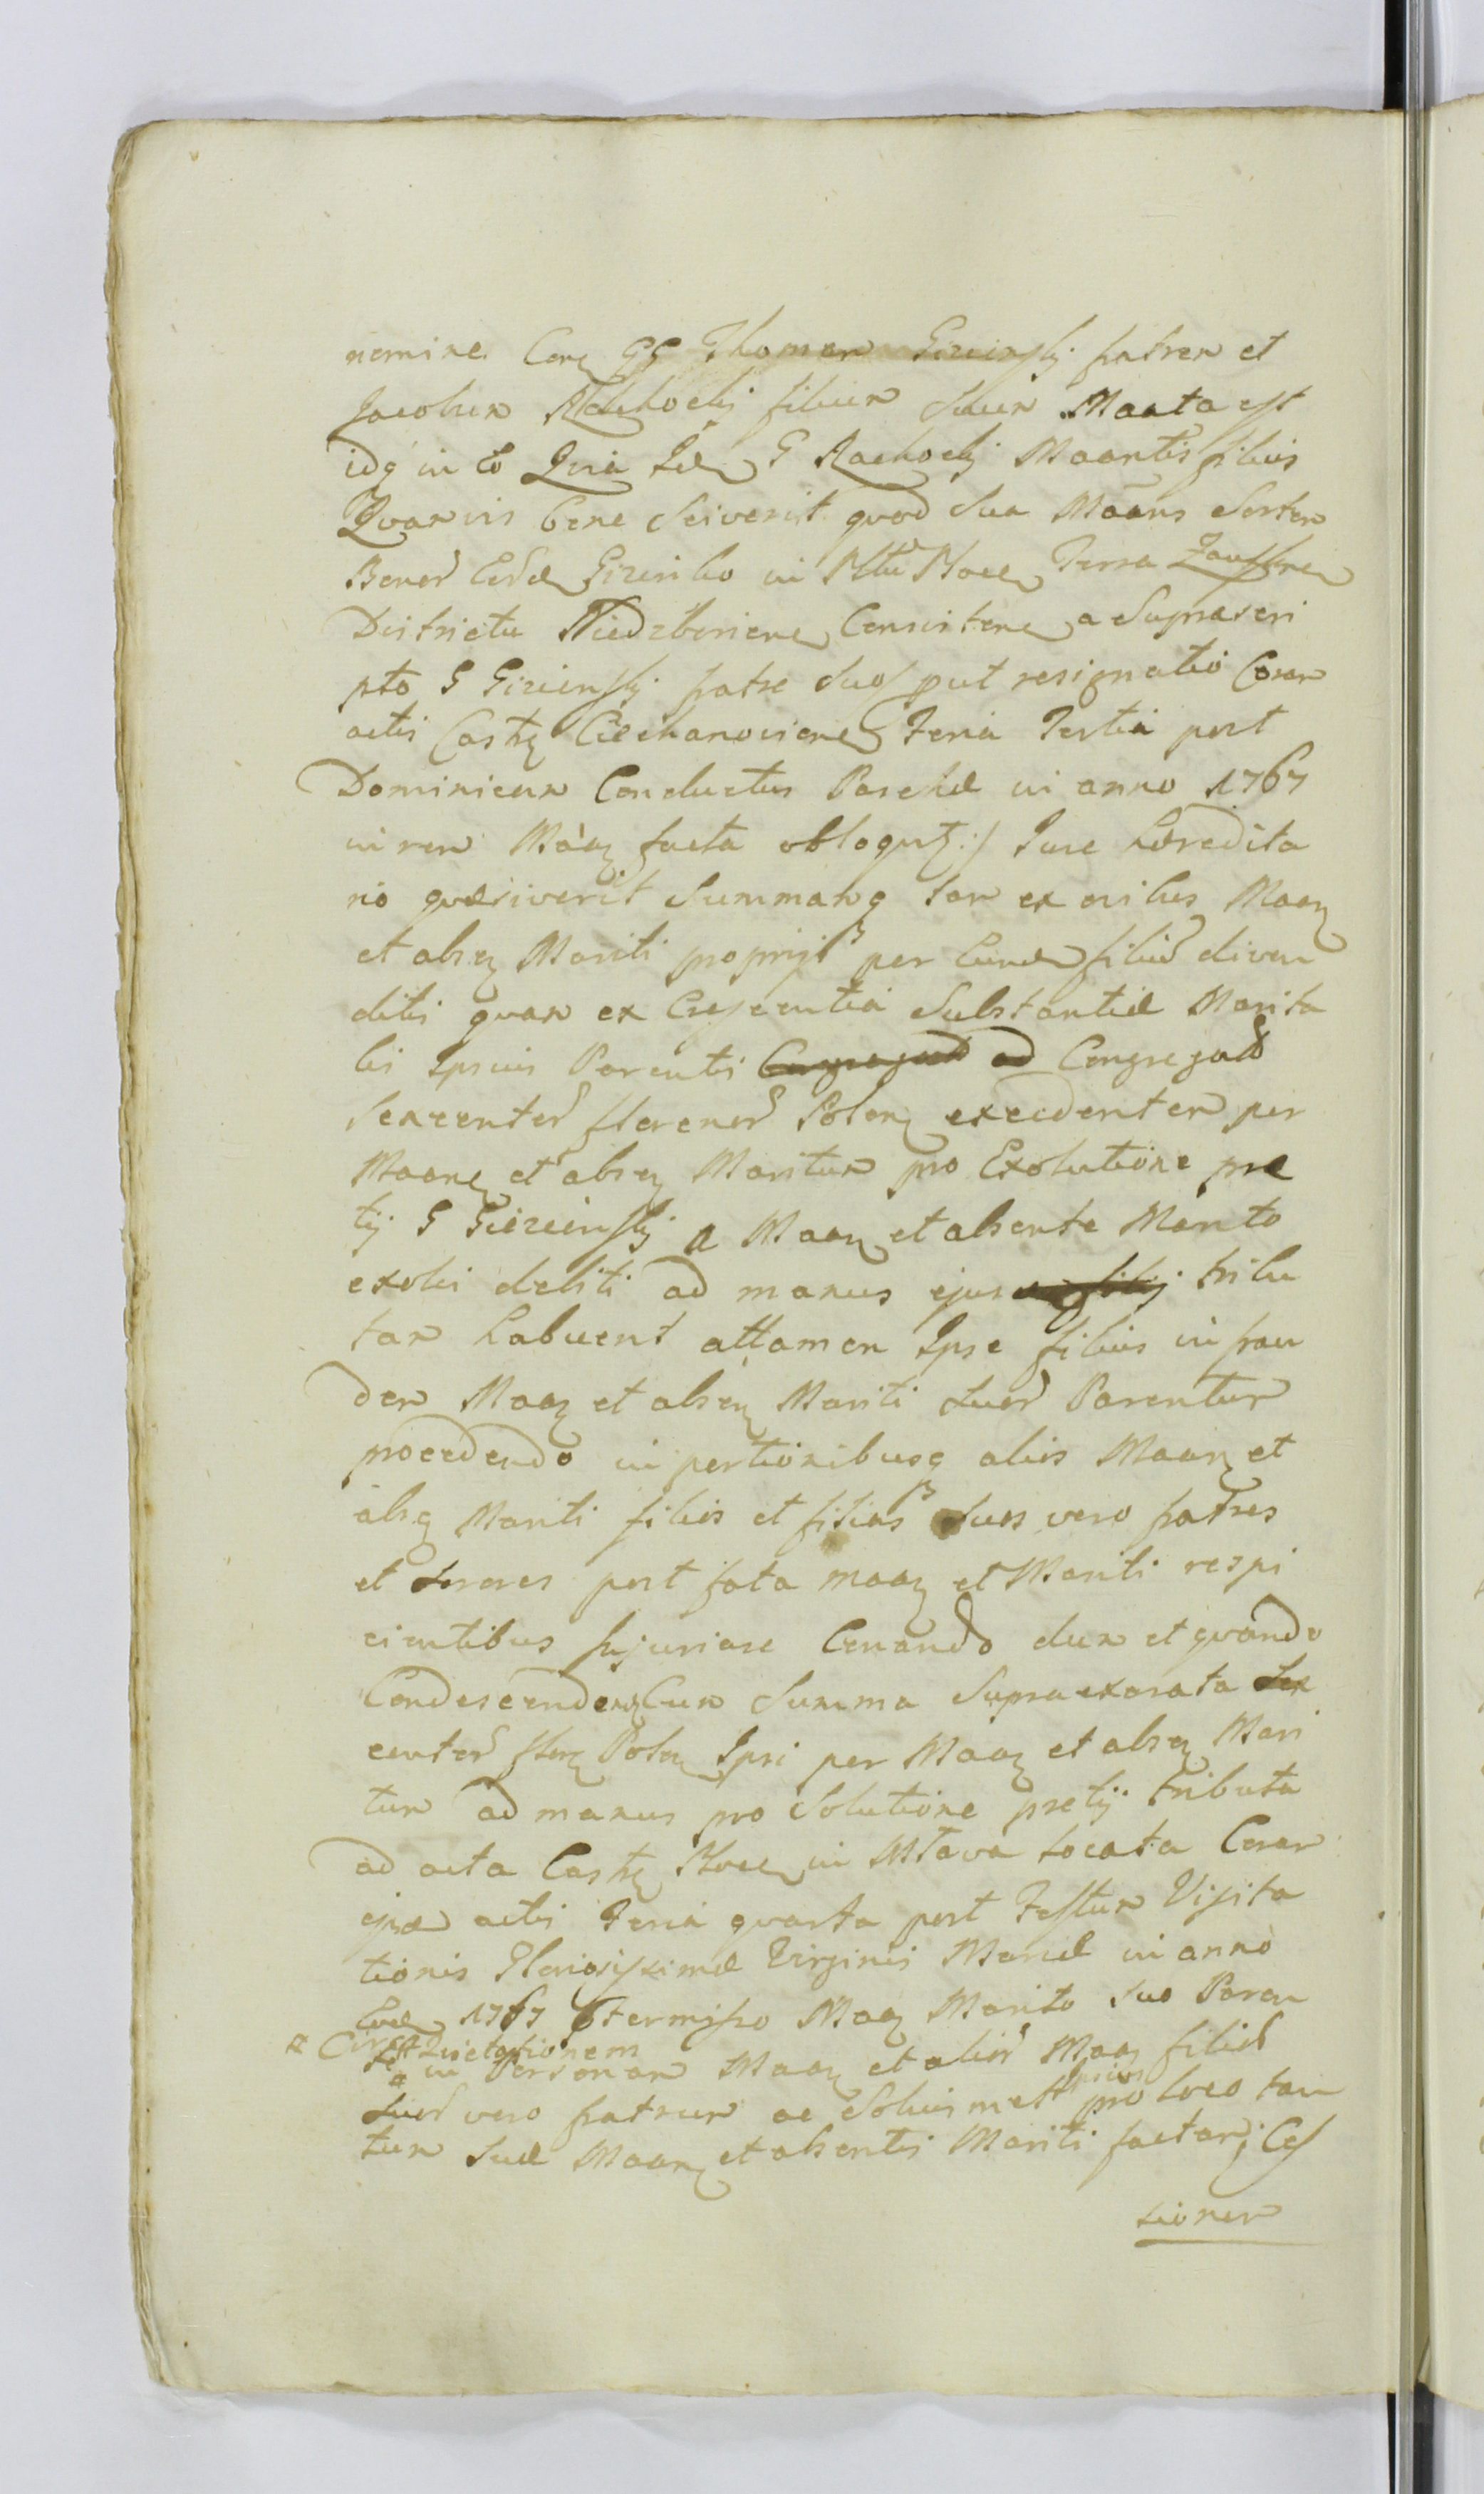 nomine Corą GG Thomam Gizinskij fratrem et
Jacobum Rachockij filium Suum Maata est
idq in Eo Quia Idem G Rachockij Maantis filius
Quamvis bene Sciverit quod Sua Maans Sortem
Bonor Eadem Gizinko in Pttu Ploceñ Terra Zauskren
Districtu Niedzboriens Consistens a Suprascri
pto G Gizinskij fratre Suo /put resignatio Coram
actis Castr Ciechanoviens Feria Tertia post
Dominicam Conductus Paschæ in anno 1767
in rem Maan facta obloquit:/ Jure hæredita
rio quæsiverit Summamq tam ex Maan
et absen Mariti proprijs per Eundem filium diven
ditis quam ex Crescentia Substantiæ Marita
lis Ipsius Parentis Congregatad ad Congregatad
Sexcentos florenos Polon excedentem per
Maanc et absen Maritum pro Exolutione pre
tij G Gizinskij a Maan et absente Marito
exolvi debiti ad manus ejus filij tribu
tam habuerit attamen Ipse filius in frau
dem Maan et absen Mariti Suor Parentum
procedendo in portionibusq aliis Maan et
absq Mariti filiis et filiabs Suos vero fratres
et Sorores post fata maan et Mariti respi
cientibus Injuriare Conando dum et quando
Condescendens Cum Summa Supraexarata Sex
centor flor Polon Ipsi per Maan et absen Mari
tum ad manus pro Solutione pretij tributa
ad acta Castr Ploceñ in Mława locata Coram
actis Feria quarta post Festum Visita
tionis Gloriosissimæ Virginis Mariæ in anno
Eod 1767 Maan Marito Suo Paren
* Quietationem
in Personam Maan et alior Maan filior
Suor vero fratrum ac Soliusmet Ipsius pro loco tan
tum Suæ Maan et absentis Mariti factam, Ces
sionem